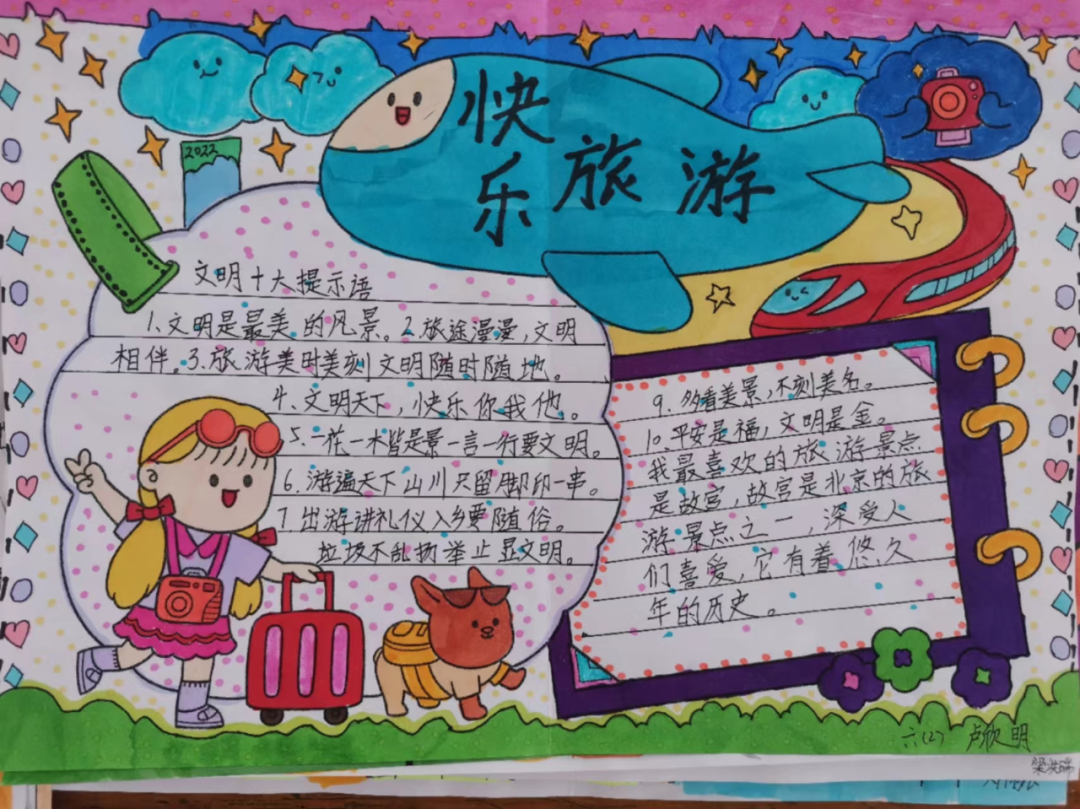 快
乐 旅 游
2022
文明十大提示语
1、文明是最美的风景。2、旅途漫漫,文明
相伴。3、旅游美时美刻文明随时随地。
4、文明天下,快乐你我他。
5、一花一木皆是景一言一行要文明。
6、游遍天下山川只留脚印一串。
7、出游讲礼仪入乡要随俗。
垃圾不乱扔举止显文明。
9、多看美景,不刻美名。
10、平安是福,文明是金。
我最喜欢的旅游景点
是故宫,故宫是北京的旅
游景点之一,深爱人
们喜爱,它有着悠久
年的历史。
六(2) 卢欣明